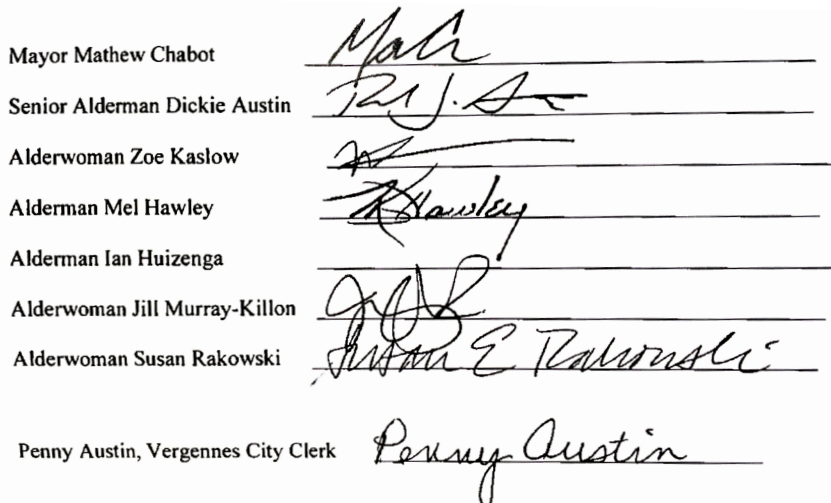 Mayor Mathew Chabot
Senior Alderman Dickie Austin
Alderwoman Zoe Kaslow
Alderman Mel Hawley Hawley
Alderman Ian Huizenga
Alderwoman Jill Murray-Killon
Alderwoman Susan Rakowski Susan E Rakowski
Penny Austin, Vergennes City Clerk Penny Austin